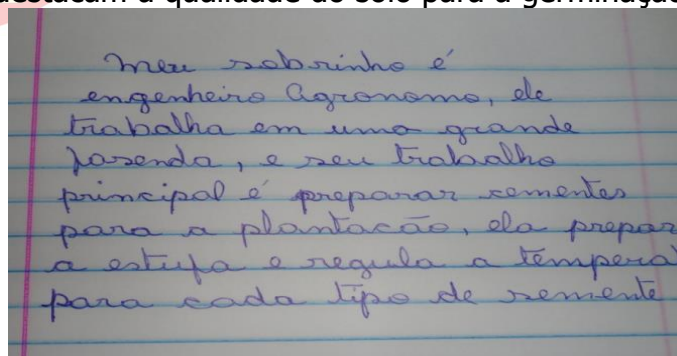 destacam a qualidade do solo para a germinação
Meu sobrinho é
engenheiro Agronomo, ele
trabalha em uma grande
fazenda, e seu trabalho
principal é preparar sementes
para a plantacão, ela prepar
a estufa e regula a tempera
para cada tipo de semente